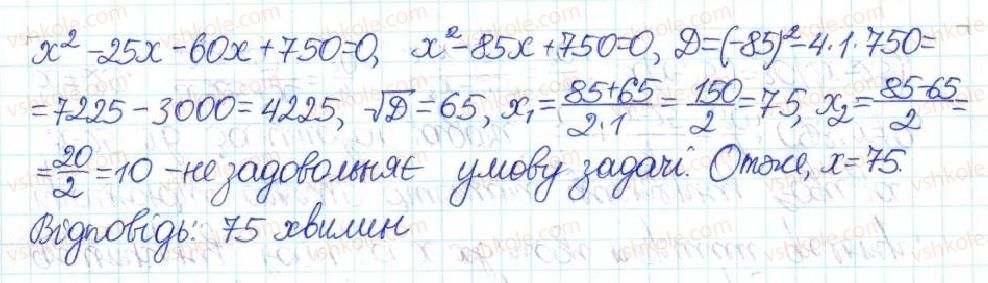 x² - 25x - 60x + 750 = 0, x² - 85x + 750 = 0, D = (-85)² - 4·1·750 =
= 7225 - 3000 = 4225, √D = 65, x₁ = (85+65)/(2·1) = 150/2 = 75, x₂ = (85-65)/2 =
= 20/2 = 10 - не задовольняє умову задачі. Отже, x = 75.
Відповідь: 75 хвилин